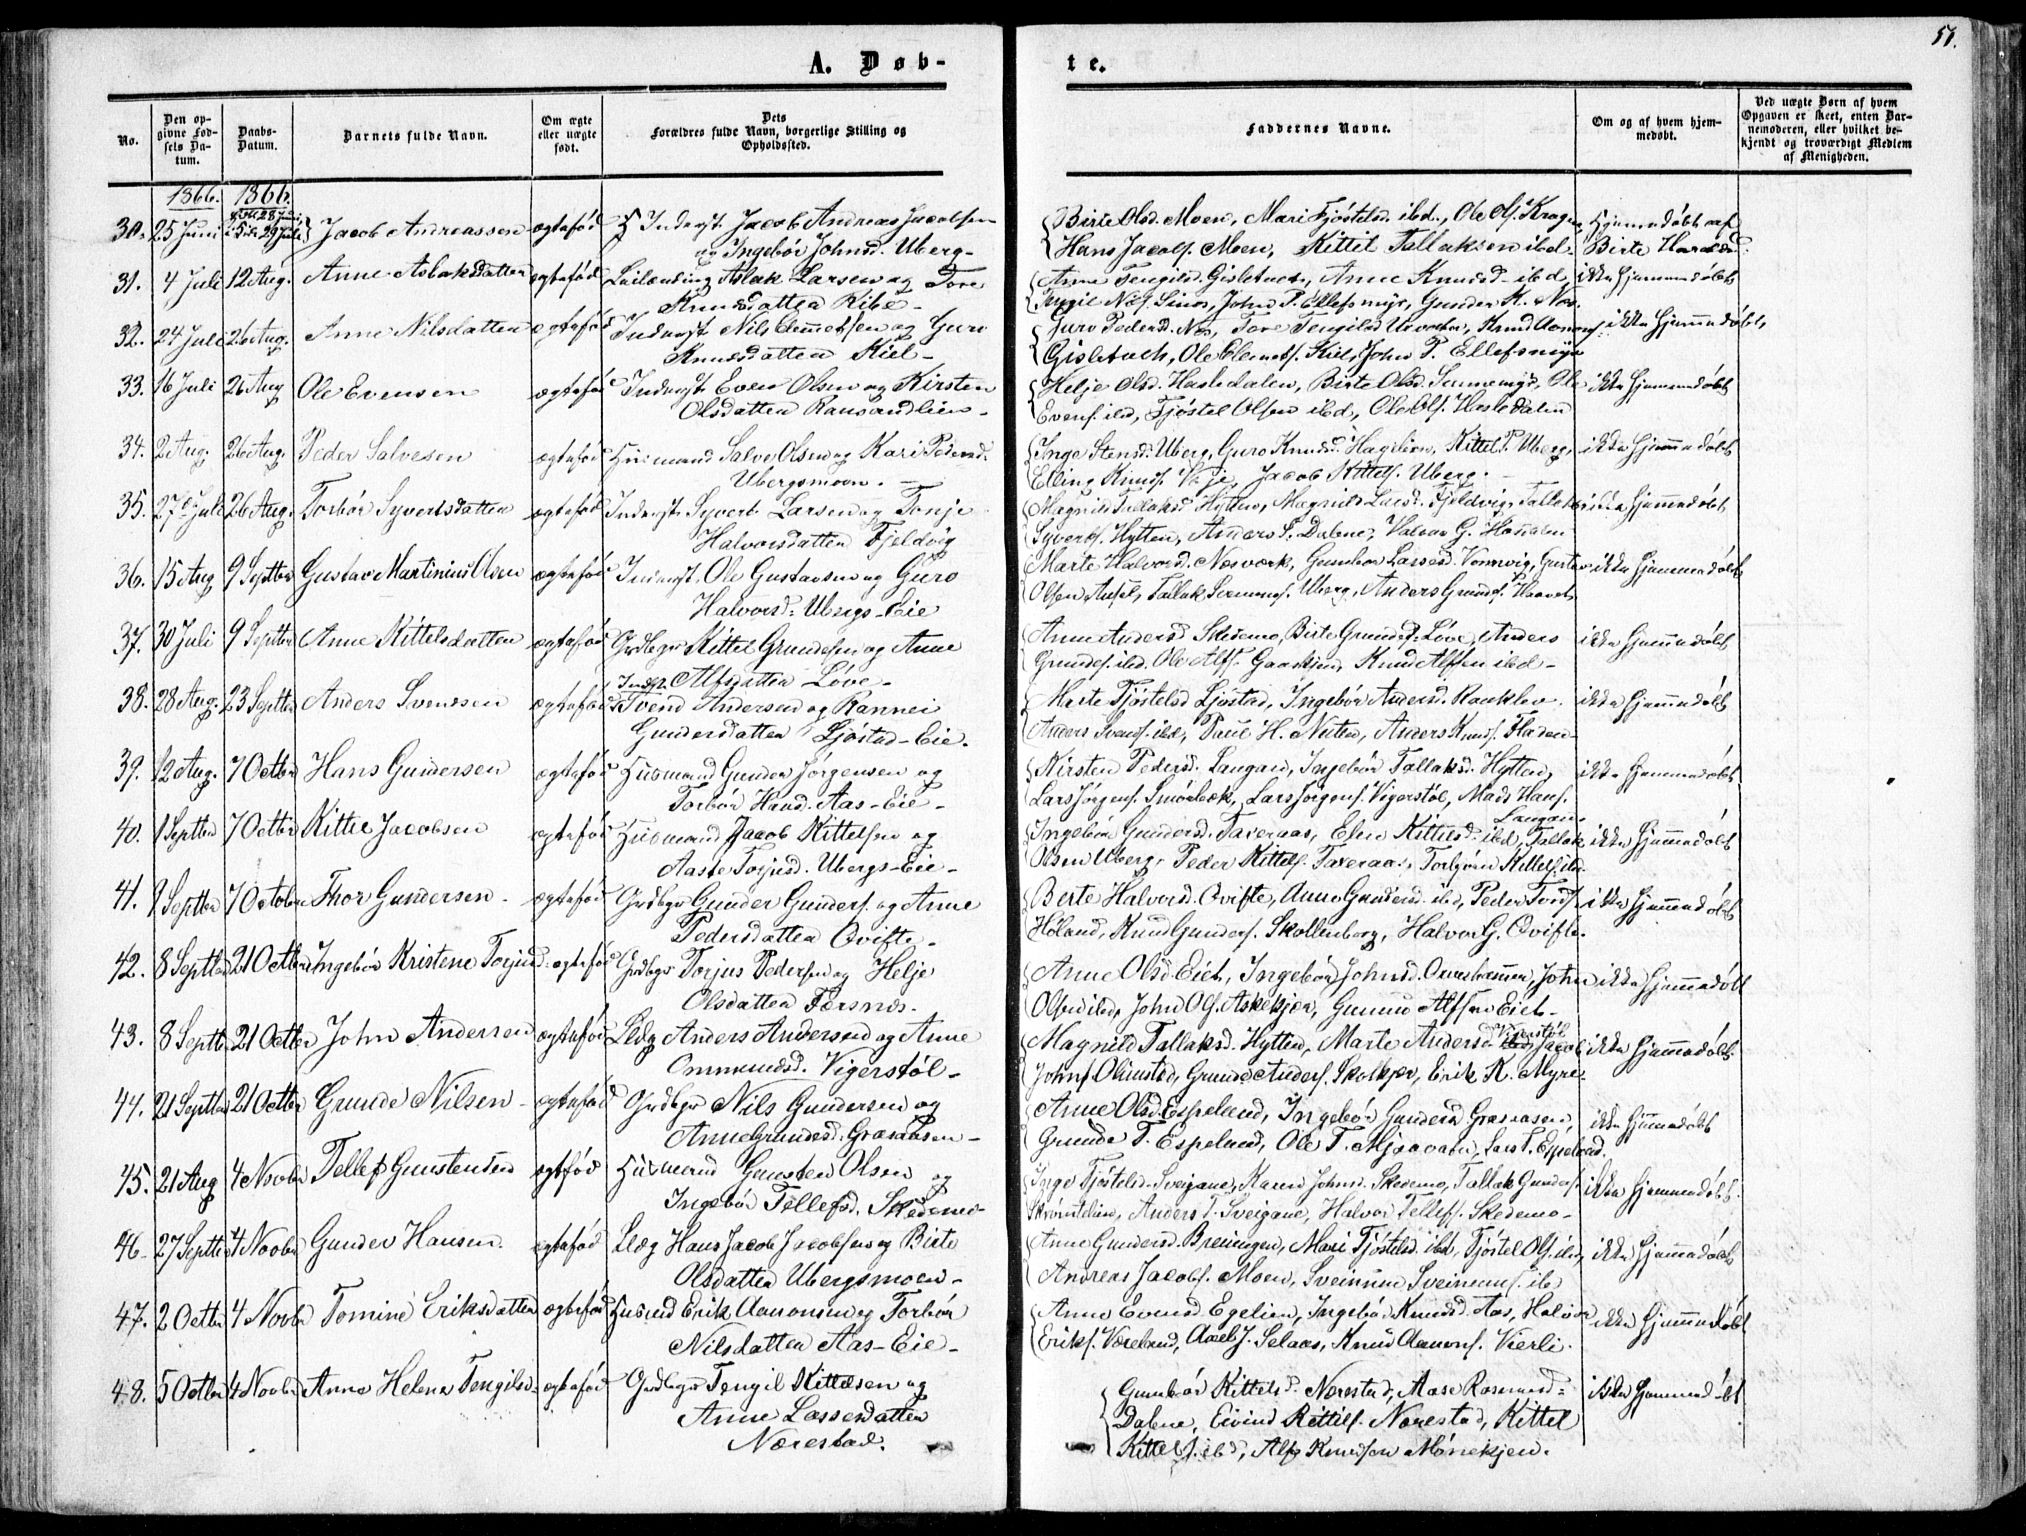 51.
A. Døb-
te.
No.
Den op-
givne Fød-
sels Da-
tum.
Daabs-
Datum.
Barnets fulde Navn.
Om ægte
eller uægte
født.
Dets
Forældres fulde Navn, borgerlige Stilling og
Opholdssted.
Faddernes Navne.
Om og af hvem hjem-
medøbt.
Ved uægte Børn af hvem
Opgaven er skeet, enten Bar-
nemoderen, eller hvilket be-
kjendt og troværdigt Medlem
af Menigheden.
1866. 1866.
30. 25 Juni 29 Juli Jacob Andreassen ægtefød Jacob Andreas Jacobsen
og Ingebør Johnsd. Uberg-
Birte Olsd. Moen, Mari Fjøstelsd. ibd., Ole Ols.
Hans Jacobs. Moen, Kittil Tallaksen ibd.
Hjemmedøbt af
Birte Haraldsd.
31. 4 Juli 12 Aug. Anne Aslaksdatter ægtefød Leilænding Aslak Larsen og Tore
Knudsdatter Ribe-
Anne Tengilsd. Gisletveet, Anne Knudsd. ibd.,
Tengil Nils. Simos, John P. Ellefsmyr, Gunder K. Næs.
ikke hjemmedøbt
32. 24 Juli 26 Aug. Anne Nilsdatter ægtefød Inderst Nils Clemetsen og Guro
Knudsdatter Kiel-
Guro Pedersd. Næs, Tore Tengilsd. Knud Aanons.
Gisletvech, Ole Clemets. Kiel, John P. Ellefsmyr
ikke hjemmedøbt,
33. 16 Juli 26 Aug Ole Evensen ægtefød Inderst Even Olsen og Kirsten
Olsdatter Ransandlien-
Helje Olsd. Hasledalen, Birte Olsd. Ole
Evens. ibd, Fjøstel Olsen ibd, Ole Ols. Hasledalen
ikke hjemmedøbt
34. 2 Aug. 26 Aug. Peder Salvesen ægtefød Husmand Salve Olsen og Kari Pedersd.
Ubergsmoen.
Inge Stensd. Uberg, Guro Knudsd. Hagelien, Kittel P. Uberg,
Elling Knuds. Veje, Jacob Kittels. Uberg.
ikke hjemmedøbt
35. 27 Juli 26 Aug. Torbør Syvertsdatter ægtefød Inderst Syvert Larsen og Tonje
Halvorsdatter Fjeldvig
Magnild Tallaksd. Hytten, Magnild Larsd. Fjeldvig, Tallak
Syverts. Hytten, Anders S. Dalene, Halvor G.
ikke hjemmedøbt
36. 15 Aug 9 Septbr Gustav Martinius Olsen ægtefød Inderst. Ole Gustavsen og Guro
Halvorsd. Ubergs-Eie
Marte Halvorsd. Næsværk, Gunbor Lassesd. Vormvig, Gustav
Olsen Tallak Uberg, Anders Grunds.
ikke hjemmedøbt
37. 30 Juli 9 Septbr Anne Kittelsdatter ægtefød Grdbgr Kittel Grundesen og Anne
Alfsdatter Løve-
Anne Andersd Skedemo, Birte Grundesd. Løve, Anders
Grundes. ibd. Ole Alfs. Knud Alfsen ibd-
ikke hjemmedøbt
38. 28 Aug. 23 Septbr Anders Svendsen ægtefød Svend Andersen og Rannei
Gundersdatter Ljøstad-Eie.
Marte Fjøstelsd Ljøstad, Ingebør Andersd.
Anders Svends. ibd, Paul H. Nuten, Anders Knuds. Fladen
ikke hjemmedøbt
39. 12 Aug. 7 Octbr Hans Gundersen ægtefød Husmand Gunder Jørgensen og
Torbør Hansd. Aas-Eie-
Kirsten Pedersd. Langan, Ingebør Tallaksd. Hytten,
Lars Jørgens. Smörbæk, Lars Jørgens. Vigerstöl, Mads Hans.
Langan.
ikke hjemmedøbt
40. 1 Septbr 7 Octbr Kittil Jacobsen ægtefød Husmand Jacob Kittelsen og
Aaste Torjusd. Ubergs-Eie-
Ingebør Gundersd. Taxeraas, Elen Kittilsd. ibd, Tallak
Olsen Uberg, Peder Kittels. Taxeraas, Torbjørn Kittels. ibd.
ikke hjemmedøbt
41. 1 Septbr 7 October Thor Gundersen- ægtefød Grdbgr Gunder Gunders. og Anne
Pedersdatter Qvifte-
Berte Halvorsd. Qvifte, Anne Gundersd. ibd, Peder Tords.
Høland, Knud Gunders. Skollenborg, Halvor G. Qvifte.
ikke hjemmedøbt
42. 8 Septbr 21 Octbr Ingebør Kristene Torjusd. ægtefød Grdbgr Torjus Pedersen og Helje
Olsdatter Fersnes.
Anne Olsd. Eiet, Ingebør Johnsd. John
Olsen ibd, John Ols. Askekjær, Gunnu Alfsen Eiet-
ikke hjemmedøbt
43. 8 Septbr 21 Octbr John Andersen ægtefød Ledg Anders Andersen og Anne
Ommundsd. Vigerstöl-
Magnild Tallaksd. Hytten, Marte Andersd. Vigerstöl Jacob
Johns Ölimstad, Grunde Anders. Erik K. Myre-
ikke hjemmedøbt.
44. 21 Septbr 21 Octbr Grunde Nilsen- ægtefød Grdbgr Nils Gundersen og
Anne Grundesd. Grasaasen-
Anne Olsd. Espeland, Ingebör Gundersd. Grasaasen,
Grunde T. Espeland, Ole T. Mjaavatn, Lars T. Espeland.
ikke hjemmedøbt
45. 21 Aug 4 Novbr Tellef Gunstensen ægtefød Husmand Gunsten Olsen og
Ingebör Tellefsd. Skedemo-
Inge Fjøstelsd. Sveigane, Karen Johnsd. Skedemo, Tallak Gunders.
Skröntelien, Anders T. Sveigane, Halvor Tellefs. Skedemo-
ikke hjemmedøbt.
46- 27 Septbr 4 Novbr Gunder Hansen. ægtefød Leeg Hans Jacob Jacobsen og Birte
Olsdatter Ubergsmoen-
Anne Gundersd. Breiungen, Mari Fjøstelsd. ibd, Fjøstel Ols. ibd,
Andreas Jacobs. Moen, Sveinum Sveinums. ibd
ikke hjemmedøbt
47. 2 Octbr 4 Novbr Tomine Eriksdatter ægtefød Husmd Erik Aanonsen og Torbör
Nilsdatter Aas-Eie-
Anne Evensd. Egelien, Ingebör Knudsd. Aas, Halvor
Eriks. Væreland, Axel J. Selaas, Knud Aanons. Vierli.
ikke hjemmedøbt
48. 5 Octbr 4 Novbr Anne Helene Tengilsd. ægtefød Grdbgr Tengil Kittelsen og
Anne Lassesdatter
Nærestad.
Gunbör Kittelsd. Nærestad, Aase Rasmusd=
Dalene, Eivind Kittils. Nærestad, Kittel
Kittels. ibd, Alf Knudsen Mönekjen.
ikke hjemmedøbt